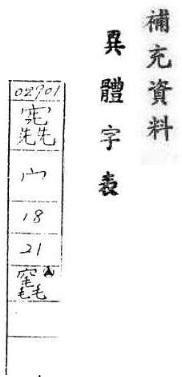 補充資料
異體字表
02901
宀
18
21
竁